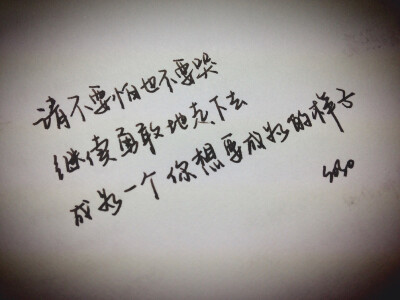 请不要怕也不要哭
继续勇敢地走下去
成为一个你想要成为的样子